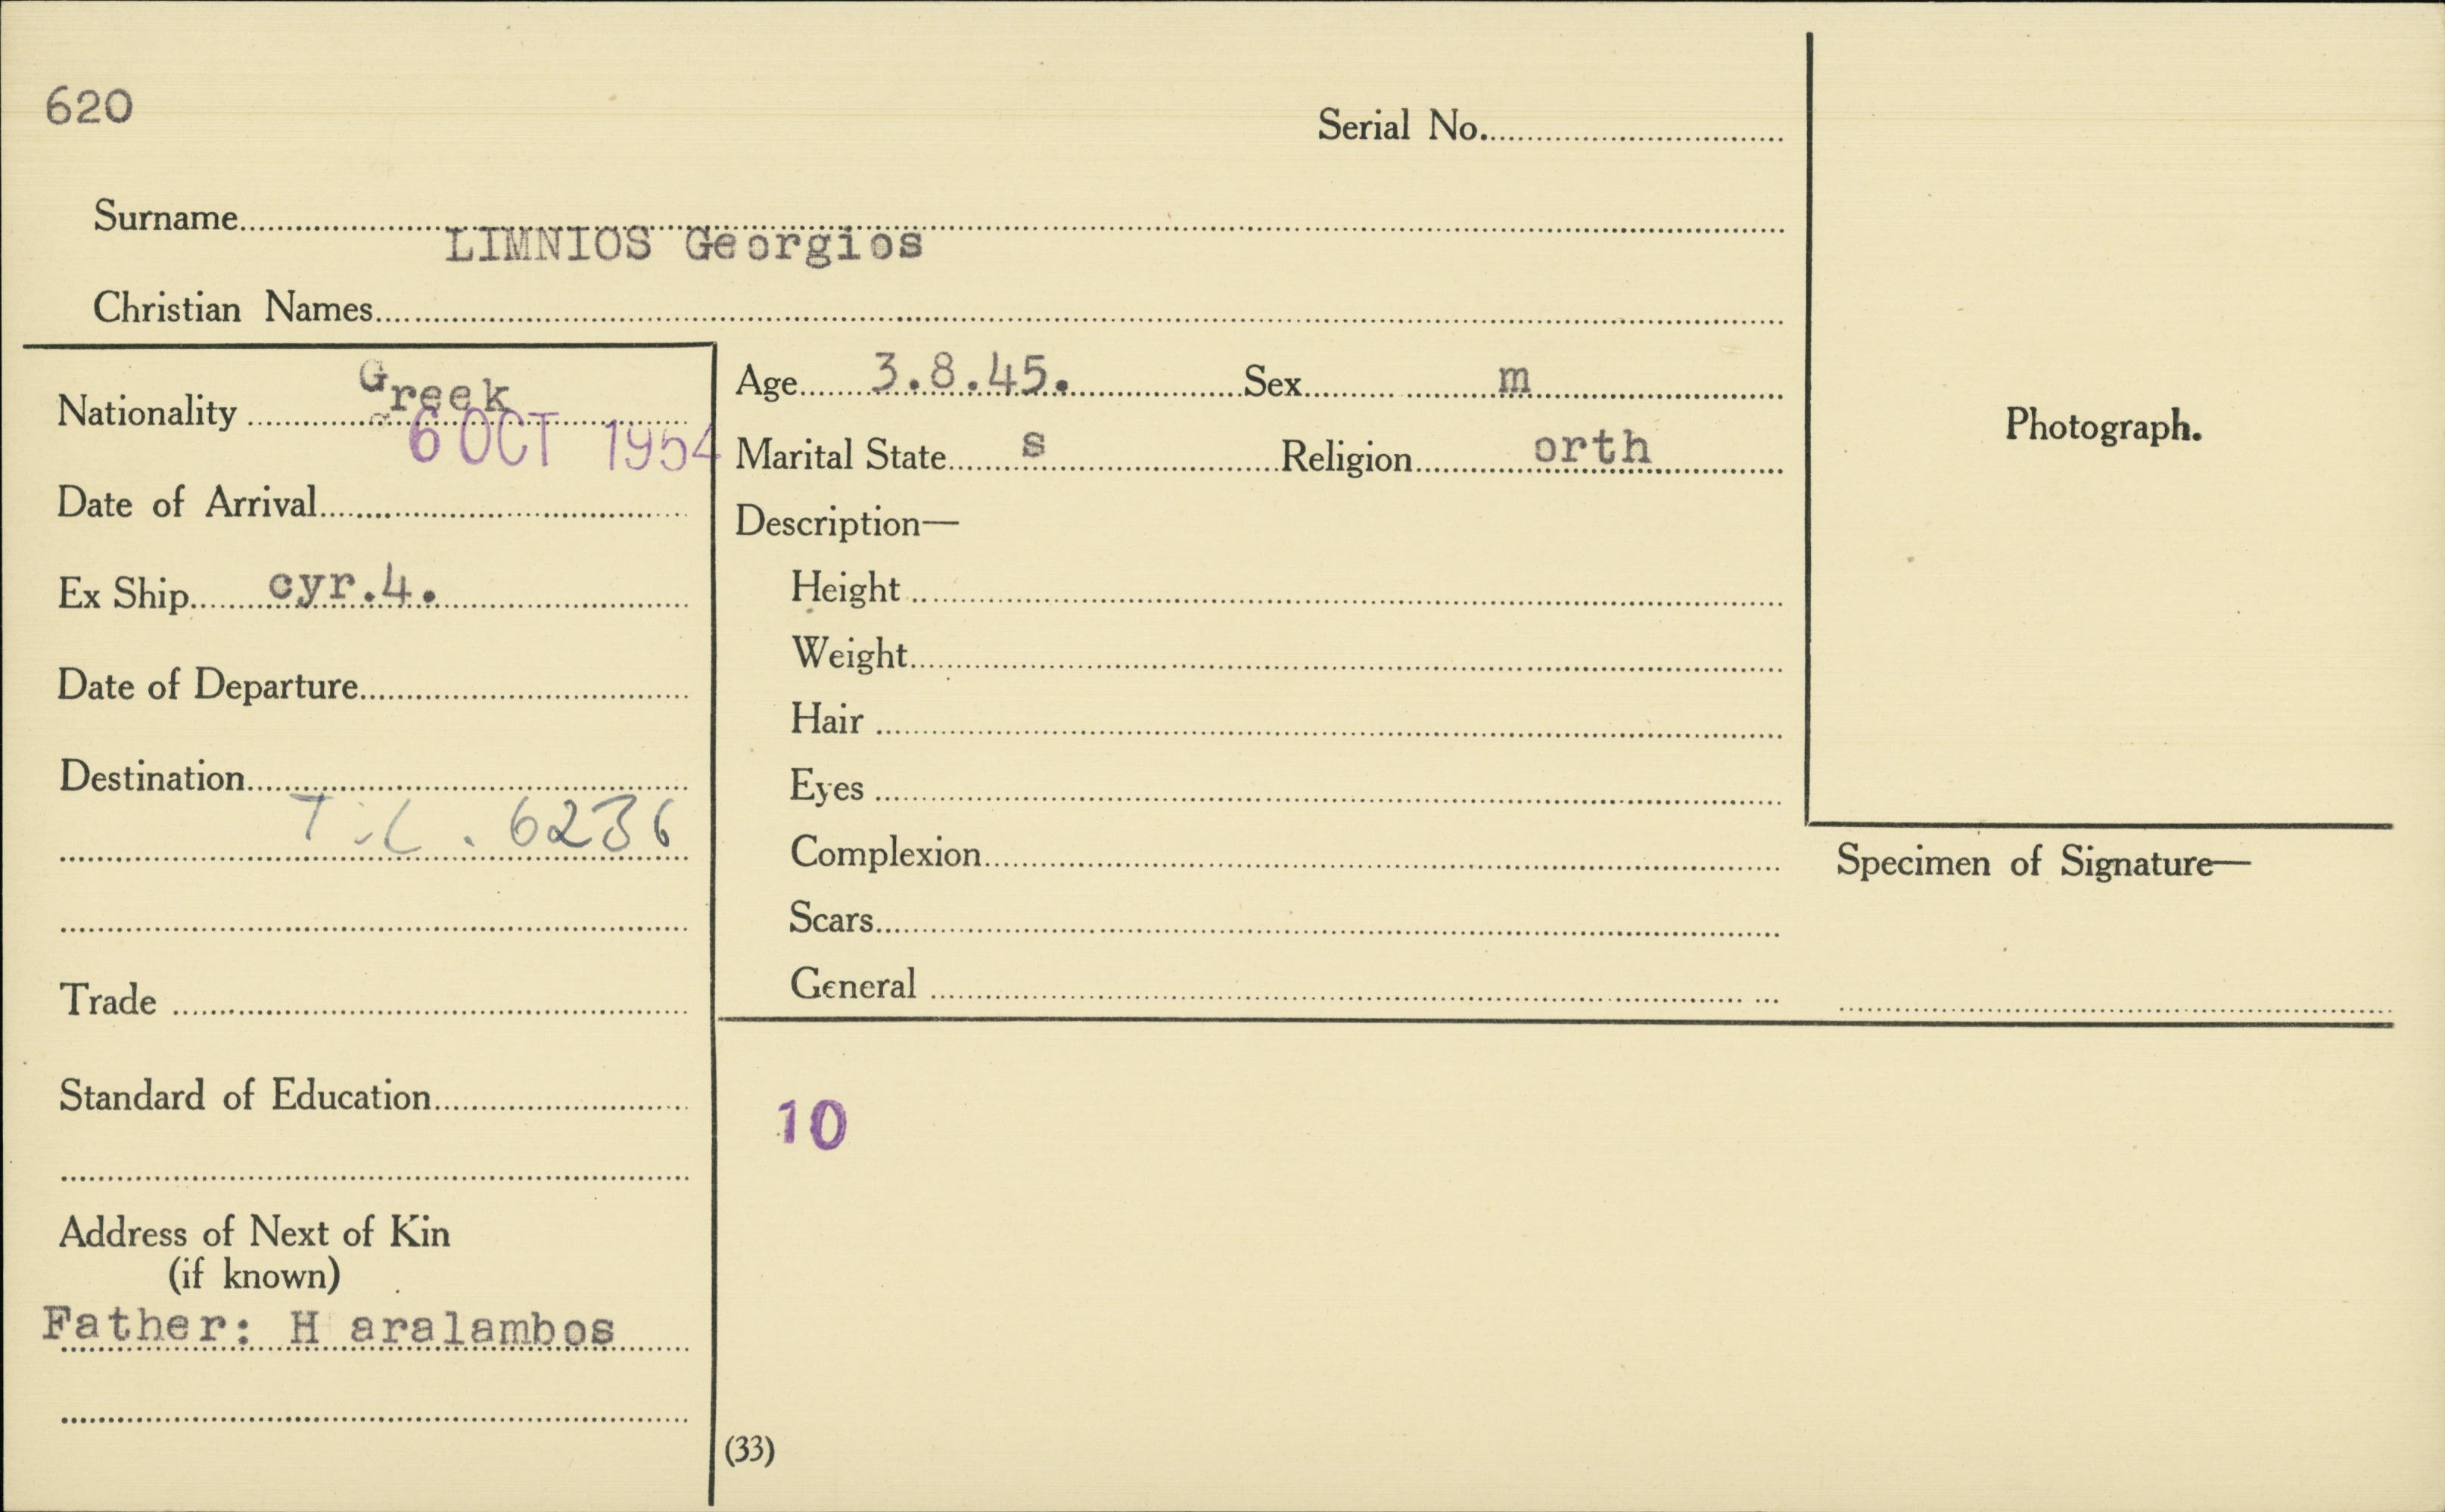 620
Serial No.
Surname
LIMNIOS Georgios
Christian Names
Nationality Greek
6 OCT 1954
Date of Arrival
Ex Ship cyr.4.
Date of Departure
Destination
T.L. 6236
Trade
Standard of Education
Address of Next of Kin
(if known)
Father: H aralambos
Age 3.8.45. Sex m
Marital State s Religion orth
Description—
Height
Weight
Hair
Eyes
Complexion
Scars
General
Photograph.
Specimen of Signature—
10
(33)